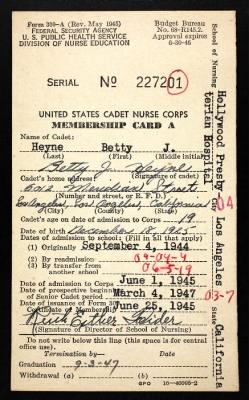 Form 300-A (Rev. May 1945)
FEDERAL SECURITY AGENCY
U. S. PUBLIC HEALTH SERVICE
DIVISION OF NURSE EDUCATION
Budget Bureau
No. 68-R145.2.
Approval expires
6-30-46
SERIAL No 227201
UNITED STATES CADET NURSE CORPS
MEMBERSHIP CARD A
Name of Cadet:
Heyne Betty J.
(Last) (First) (Middle initial)
Betty J. Heyne
Cadet's home address: (Signature of cadet)
6012 Meridian Street
(Number and street, or R. F. D.)
Los Angeles, California
Cadet's age on date of admission to Corps 19
Date of birth December 18, 1925
Date of admission to school: (Fill in all that apply)
(1) Original September 4, 1944
(2) By readmission 09-04-4
(3) By transfer from another school 06-5-19
Date admitted to Corps June 1, 1945
Date of prospective beginning of Senior Cadet period March 4, 1947
Date of issuance of Form June 25, 1945
Ruth Esther
(Signature of Director of School of Nursing)
Do not write below this line (this space for central office use).
Termination by— Date
Graduation 9-3-47
Withdrawal (a) (b)
GPO 16-40095-2
School of Nursing
Hollywood Presbyterian Hospital
04
Los Angeles
State California
03-7